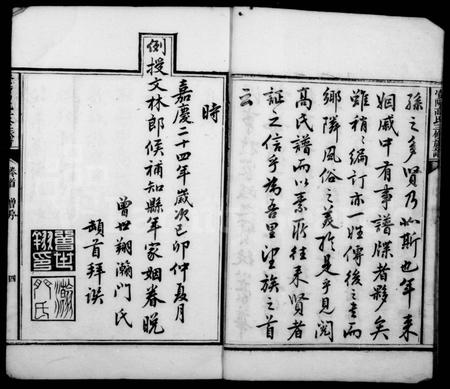 孫之多賢乃如斯也年來
姻戚中有事譜牒者夥矣
雖稍稍編訂亦一姓傳後之書而
鄉隣風俗之美於是乎見閱
高氏譜而以素所往來賢者
証之信乎為吾里望族之首
云
時
嘉慶二十四年歲次己卯仲夏月
例授文林郎候補知縣年家姻眷晚
曾世翔瀚門氏
頓首拜譔
卷首
四